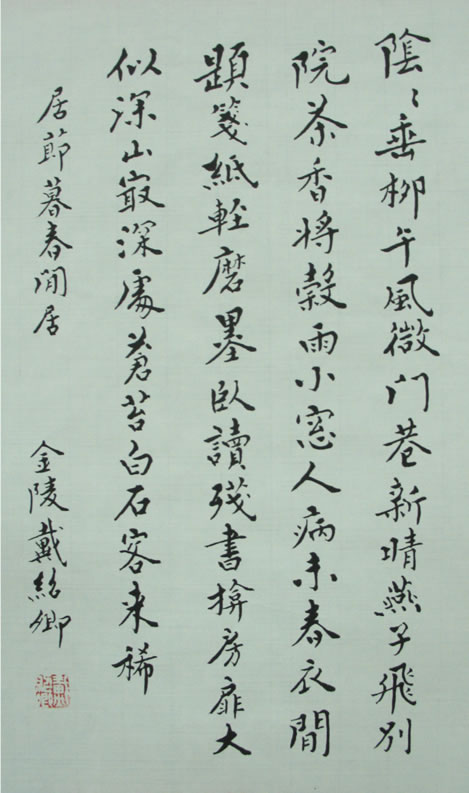 陰〻垂柳午風微門巷新晴燕子飛別
院茶香將穀雨小窓人病未春衣閒
題箋紙輕磨墨臥讀殘書揜房扉大
似深山㝡深處蒼苔白石客来稀
居節暮春閒居 金陵戴紹卿